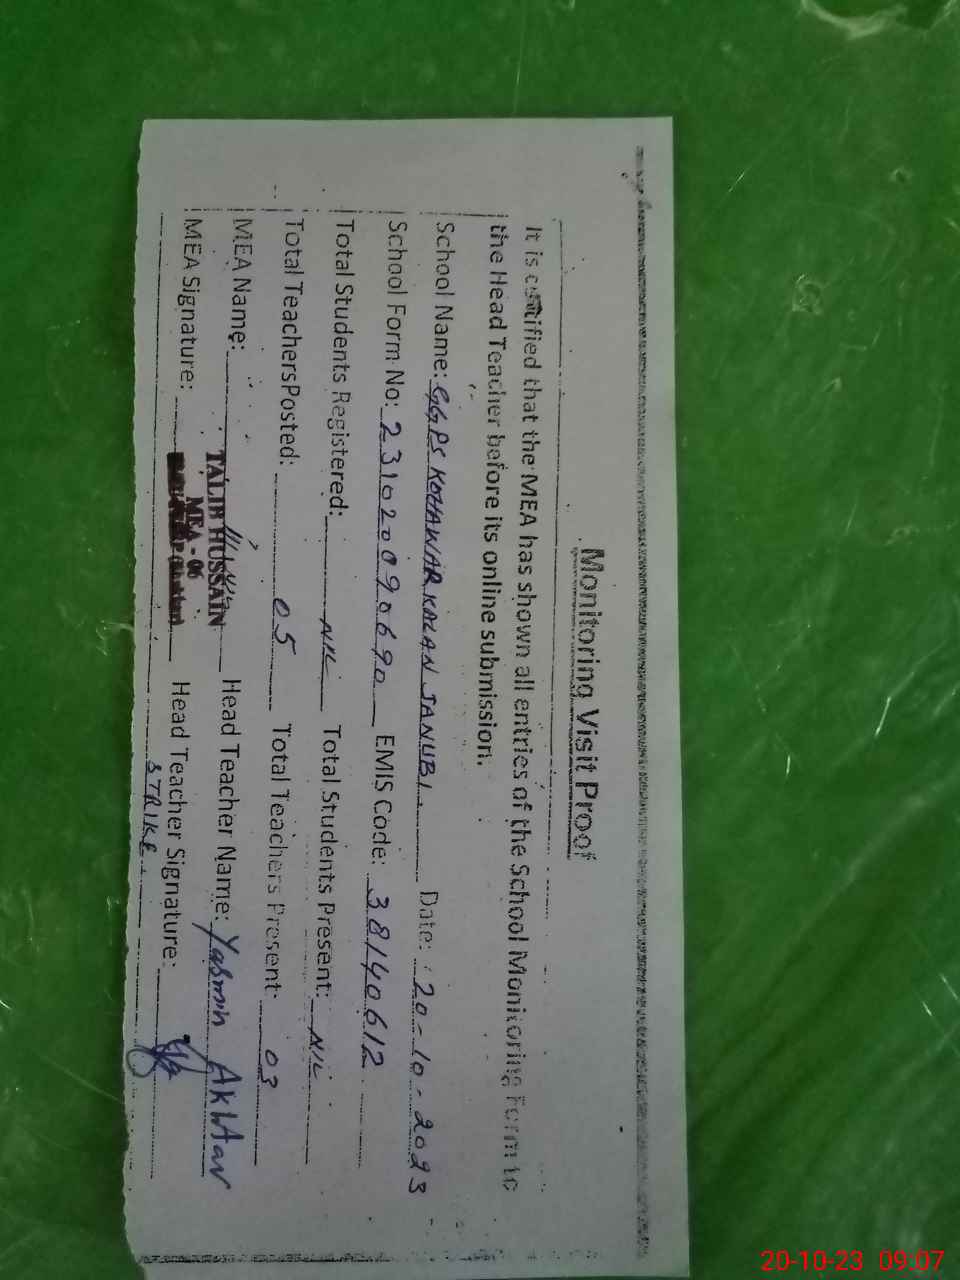 Monitoring Visit Proof
It is certified that the MEA has shown all entries of the School Monitoring Form to
the Head Teacher before its online submission.
School Name: GGPS KOHAWAR KALAN JANUBI Date: 20-10-2023
School Form No: 231020090690 EMIS Code: 38140612
Total Students Registered: NIL Total Students Present: NIL
Total Teachers Posted: 05 Total Teachers Present: 03
MEA Name: TALIB HUSSAIN Head Teacher Name: Yasmin Akhtar
MEA Signature: MEA-06 Head Teacher Signature:
STRIKE
20-10-23 09:07